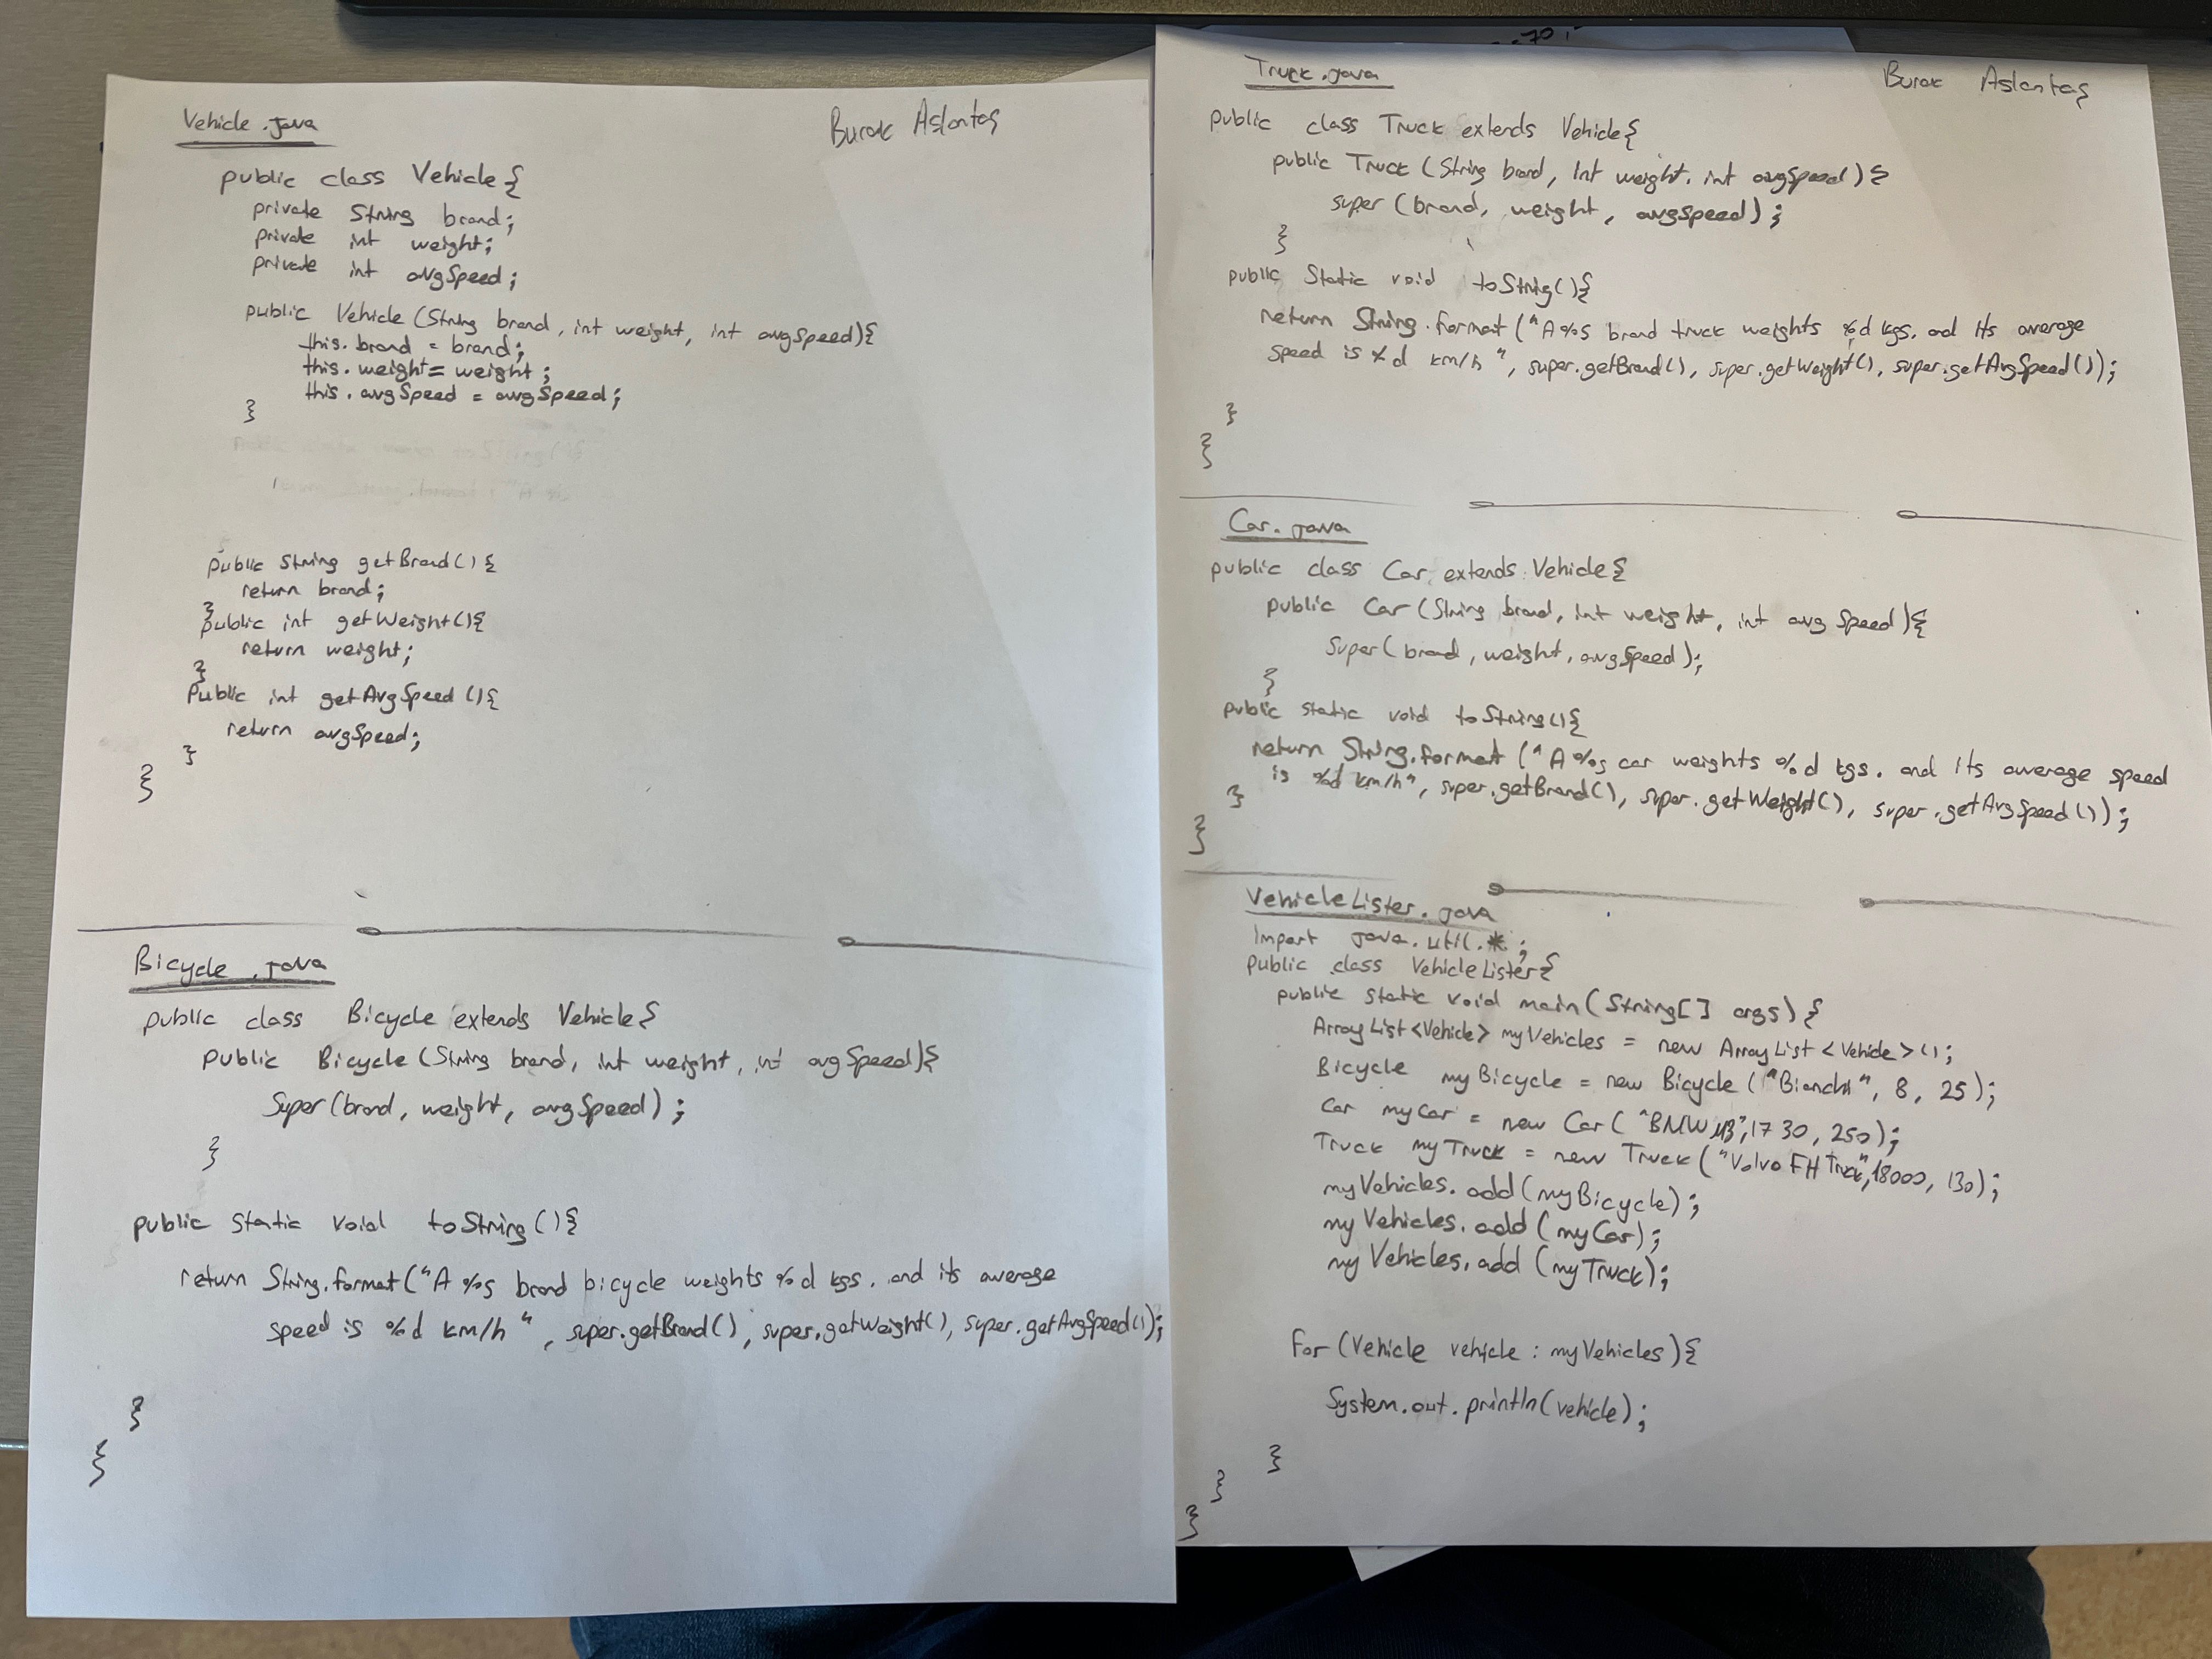 Vehicle.java
Burak Aslantaş
public class Vehicle{
private String brand;
private int weight;
private int avgSpeed;
public Vehicle(String brand, int weight, int avgSpeed){
this.brand = brand;
this.weight = weight;
this.avgSpeed = avgSpeed;
}
public String getBrand(){
return brand;
}
public int getWeight(){
return weight;
}
public int getAvgSpeed(){
return avgSpeed;
}
}
Bicycle.java
public class Bicycle extends Vehicle{
public Bicycle(String brand, int weight, int avgSpeed){
super(brand, weight, avgSpeed);
}
public static void toString(){
return String.format("A %s brand bicycle weights %d kgs. and its average
speed is %d km/h", super.getBrand(), super.getWeight(), super.getAvgSpeed());
}
}
-70,-
Truck.java
Burak Aslantaş
public class Truck extends Vehicle{
public Truck (String brand, int weight, int avgSpeed){
super (brand, weight, avgSpeed);
}
public static void toString(){
return String.format("A %s brand truck weights %d kgs. and its average
speed is %d km/h", super.getBrand(), super.getWeight(), super.getAvgSpeed());
}
}
Car.java
public class Car extends Vehicle{
public Car(String brand, int weight, int avgSpeed){
super(brand, weight, avgSpeed);
}
public static void toString(){
return String.format("A %s car weights %d kgs. and its average speed
is %d km/h", super.getBrand(), super.getWeight(), super.getAvgSpeed());
}
}
VehicleLister.java
import java.util.*;
public class VehicleLister{
public static void main(String[] args){
ArrayList<Vehicle> myVehicles = new ArrayList<Vehicle>();
Bicycle myBicycle = new Bicycle("Bianchi", 8, 25);
Car myCar = new Car("BMW M3", 1730, 250);
Truck myTruck = new Truck("Volvo FH Truck", 18000, 130);
myVehicles.add(myBicycle);
myVehicles.add(myCar);
myVehicles.add(myTruck);
for (Vehicle vehicle : myVehicles){
System.out.println(vehicle);
}
}
}